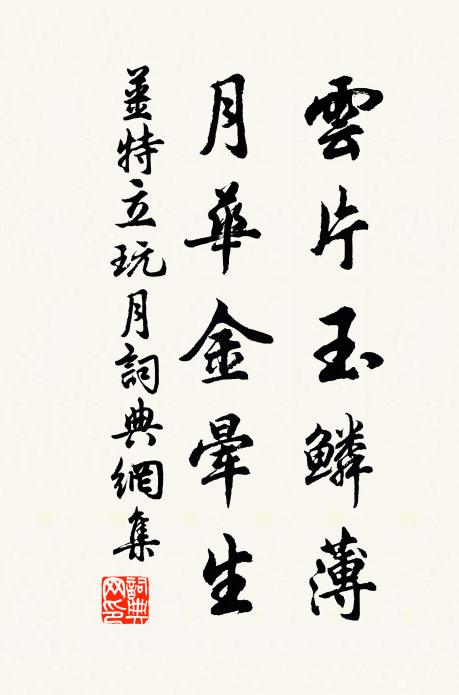 雲片玉鱗薄
月華金暈生
薑特立玩月詞典網集
詞典网印